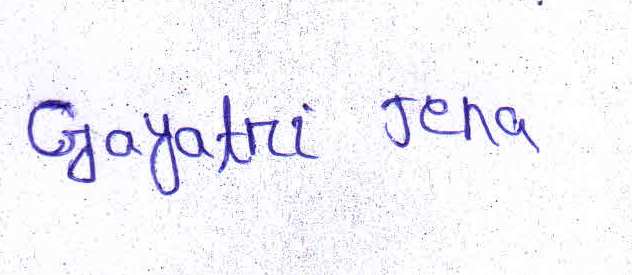 Gayatri Jena